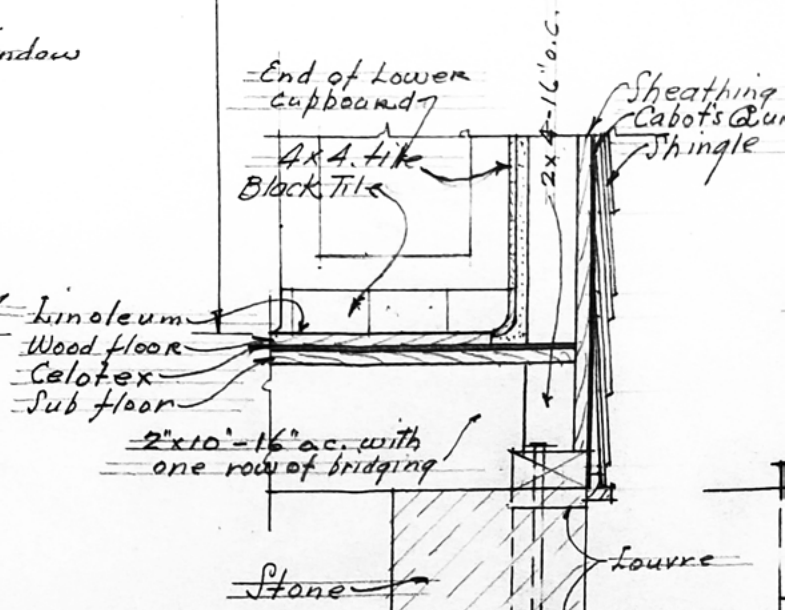 End of Lower
cupboard
4 x 4 tile
Black Tile
2 x 4 - 16" o.c.
Sheathing
Cabot's
Shingle
Linoleum
Wood floor
Celotex
Sub floor
2"x10"-16" o.c. with
one row of bridging
Stone
Louvre